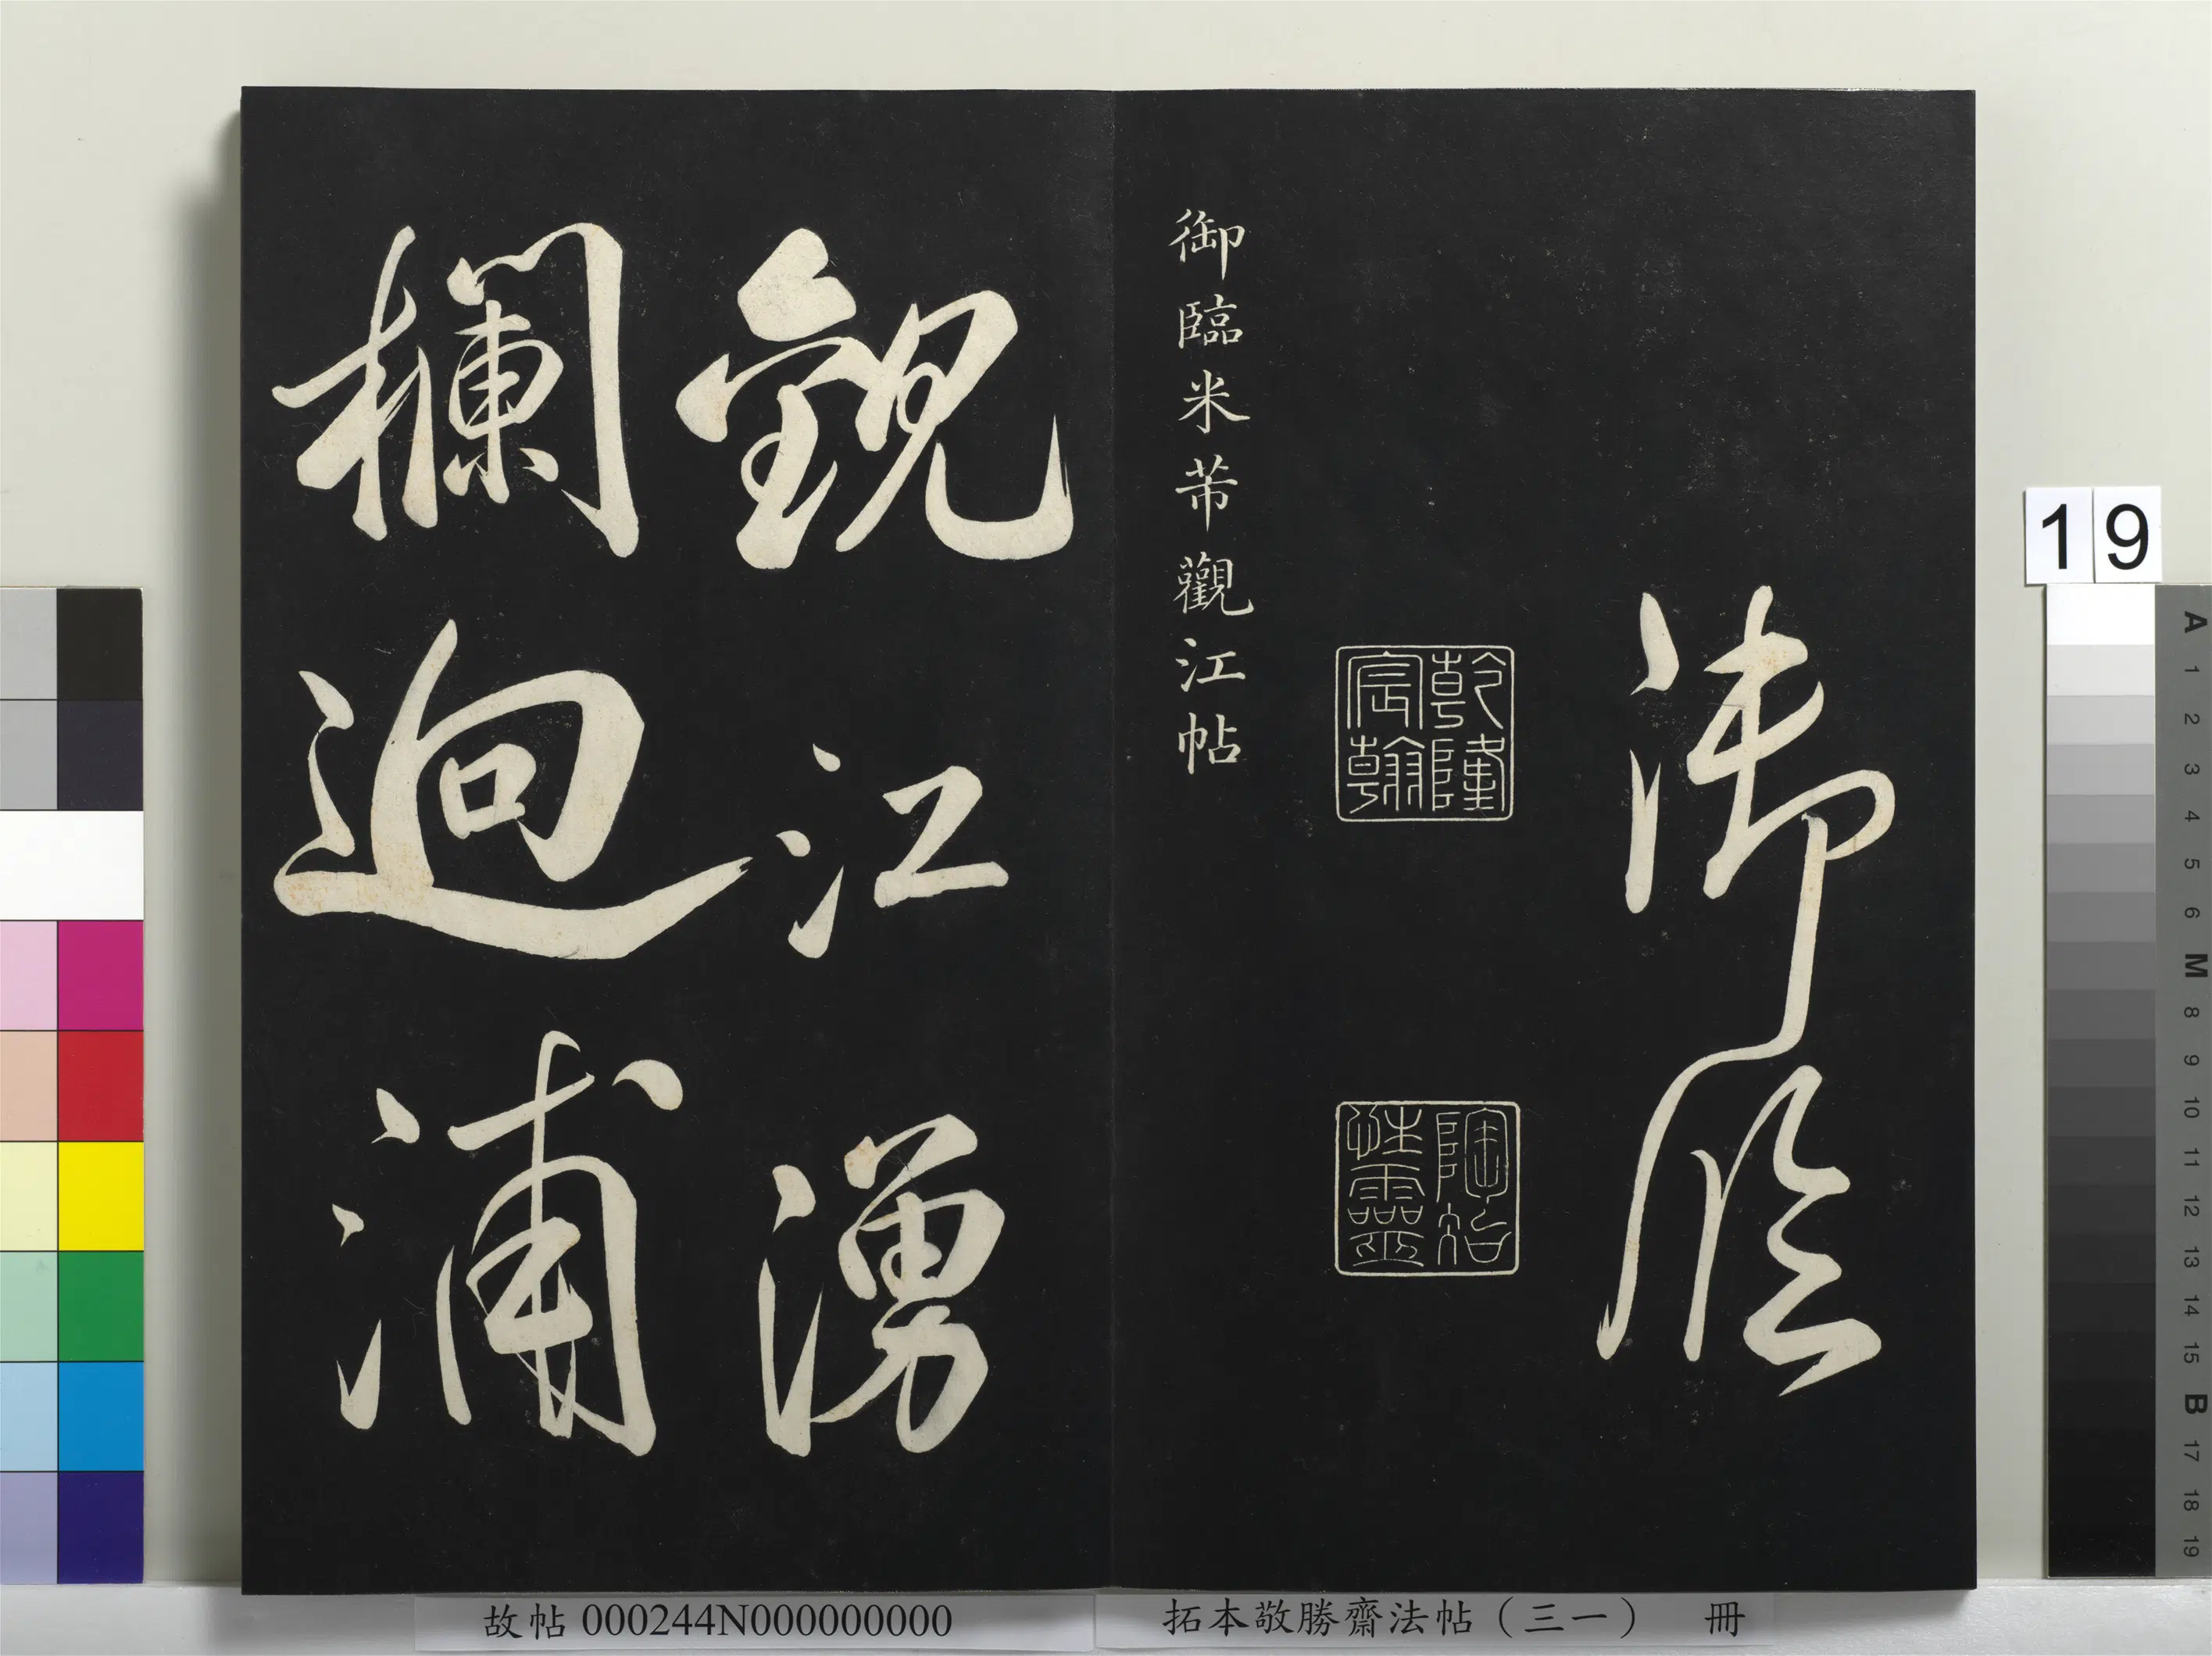 御臨
乾隆
宸翰
陶冶
性靈
御臨米芾觀江帖
觀江湧
欄迴浦
19
A
1
2
3
4
5
6
M
8
9
10
11
12
13
14
15
B
17
18
19
故帖 000244N000000000
拓本敬勝齋法帖（三一） 冊